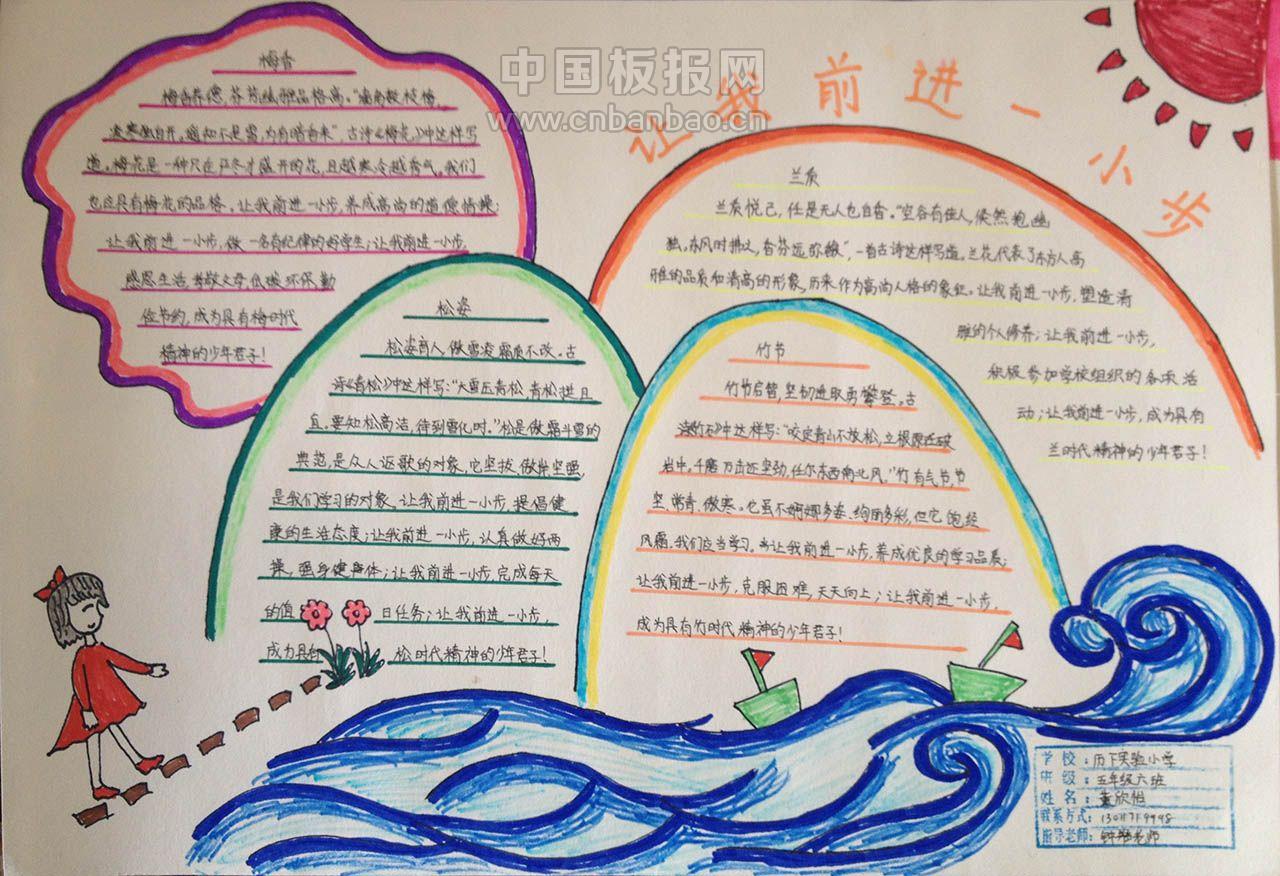 中国板报网
www.cnbanbao.cn
让我前进一小步
梅香
梅香养德，芬芳幽雅品格高。“墙角数枝梅，
凌寒独自开。遥知不是雪，为有暗香来”古诗《梅花》中这样写
道。梅花是一种只在严冬才盛开的花，且越寒冷越秀气。我们
也应具有梅花的品格。让我前进一小步，养成高尚的道德情操；
让我前进一小步，做一名有纪律的好学生；让我前进一小步，
感恩生活，孝敬父母，低碳环保，勤
俭节约，成为具有梅时代
精神的少年君子！
兰质
兰质悦己，任是无人也自香。“空谷有佳人，倏然抱幽
独。东风时拂之，香芬远弥馥”，一首古诗这样写道。兰花代表了东方人高
雅的品质和清高的形象，历来作为高尚人格的象征。让我前进一小步，塑造清
雅的个人修养；让我前进一小步，
积极参加学校组织的各项活
动；让我前进一小步，成为具有
兰时代精神的少年君子！
松姿
松姿育人，傲雪凌霜质不改。古
诗《青松》中这样写：“大雪压青松，青松挺且
直。要知松高洁，待到雪化时。”松是傲霜斗雪的
典范，是众人讴歌的对象。它坚拔，做岸坚强，
是我们学习的对象。让我前进一小步，提倡健
康的生活态度；让我前进一小步，认真做好两
操，强身健身体；让我前进一小步，完成每天
的值日任务；让我前进一小步，
成为具有松时代精神的少年君子！
竹节
竹节启智，坚韧进取勇攀登。古
诗《竹石》中这样写：“咬定青山不放松，立根原在破
岩中。千磨万击还坚劲，任尔东西南北风。”竹有气节，节
坚，常青，傲寒。它虽不婀娜多姿、绚丽多彩，但它饱经
风霜。我们应当学习。让我前进一小步，养成优良的学习品质；
让我前进一小步，克服困难，天天向上；让我前进一小步，
成为具有竹时代精神的少年君子！
学校：历下实验小学
班级：五年级六班
姓名：董欣怡
联系方式：
指导老师：钟 老师